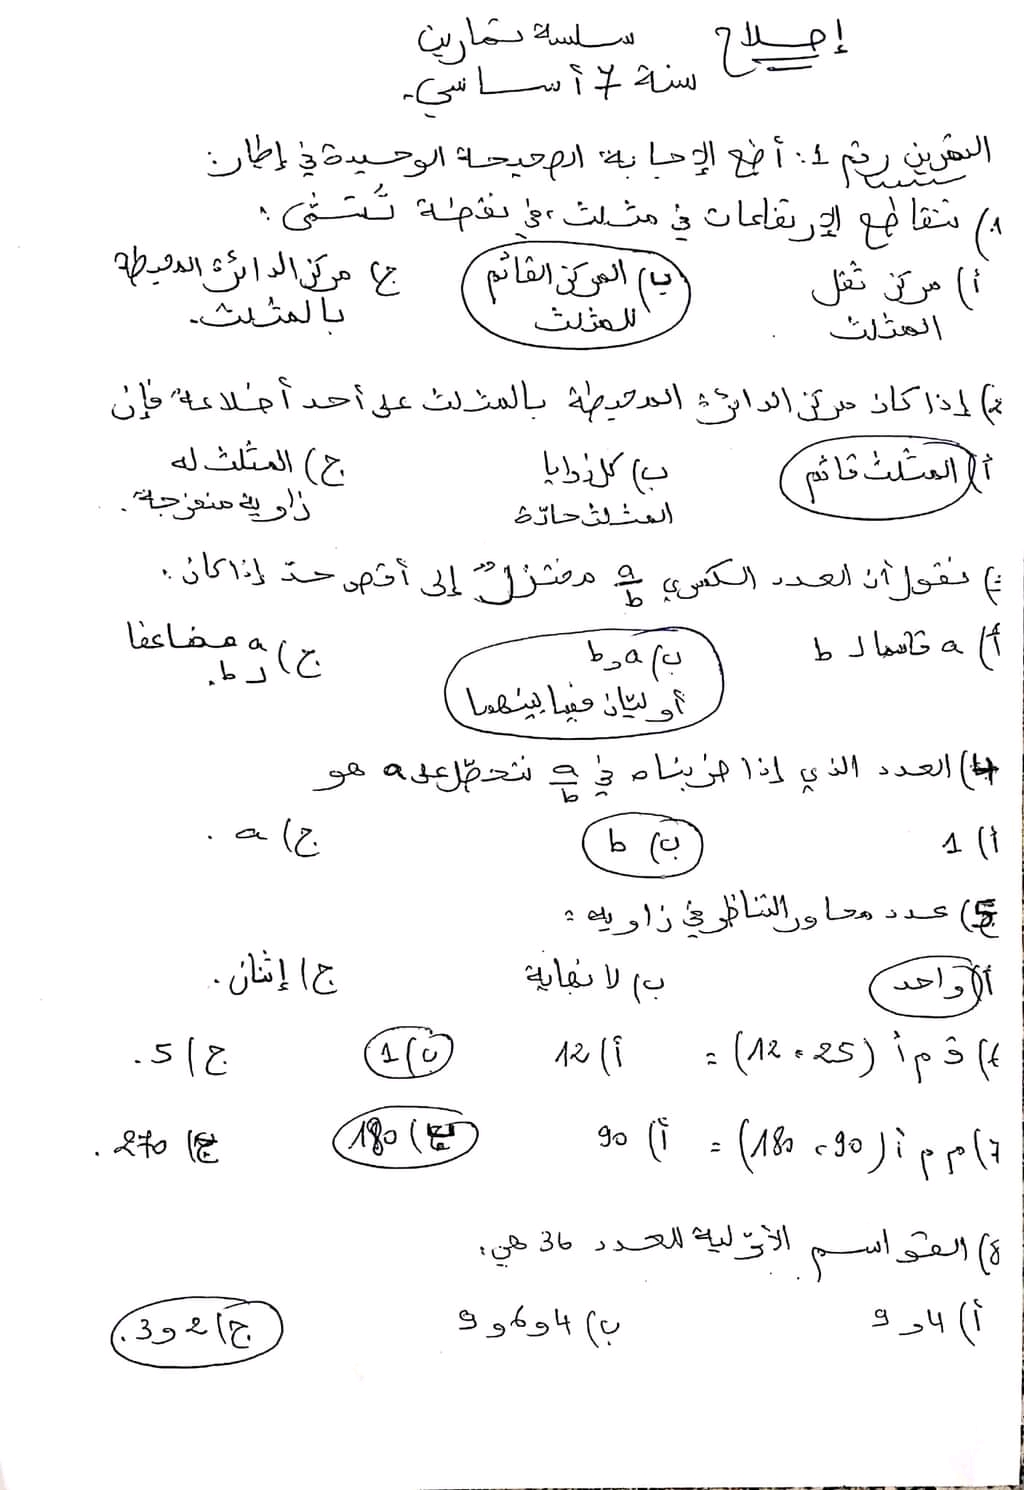 إصلاح سلسة تمارين
سنة 7 أساسي.
التمرين رقم 1: أضع الإجابة الصحيحة الوحيدة في إطار:
1) تتقاطع الإرتفاعات في مثلث، في نقطة تُسمَّى:
أ) مركز ثقل ب) المركز القائم ج) مركز الدائرة المحيطة
المثلث للمثلث بالمثلث.
2) إذا كان مركز الدائرة المحيطة بالمثلث على أحد أضلاعه فإن
أ) المثلث قائم ب) كل زوايا ج) المثلث له
المثلث حادّة زاوية منفرجة.
نقول أن العدد الكسري a/b مختزلٌ إلى أقصى حدّ إذا كان:
أ) a قاسما لـ b ب) a و b ج) a مضاعفا
أوليّان فيما بينهما لـ b.
4) العدد الذي إذا ضربناه في a/b نتحصّل على a هو
أ) 1 ب) b ج) a.
5) عدد محاور التناظر في زاوية:
أ) واحد ب) لا نهاية ج) إثنان.
6) ق م أ (25، 12) = أ) 12 ب) 1 ج) 5.
7) م م أ (90، 180) = أ) 90 ب) 180 ج) 270.
8) القواسم الأوّلية للعدد 36 هي:
أ) 4 و 9 ب) 4 و 6 و 9 ج) 2 و 3.